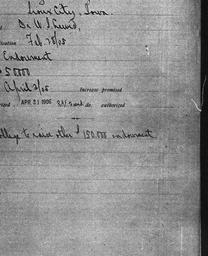 Sioux City, Iowa.
Dr. W. S. Lewis,
Feb. 28/05
Endowment
$50000
April 3/05 Increase promised
APR 21 1906 authorized
College to raise other $150.000 endowment